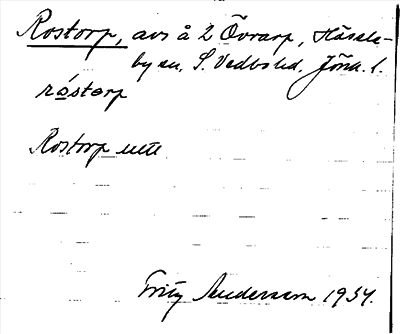 Rostorp, avs å 2 Övrarp, Hässle-
by sn. S. Vedbo hd. Jönk. l.
råstorp
Rostorp uttl
Fritz Andersson 1934.